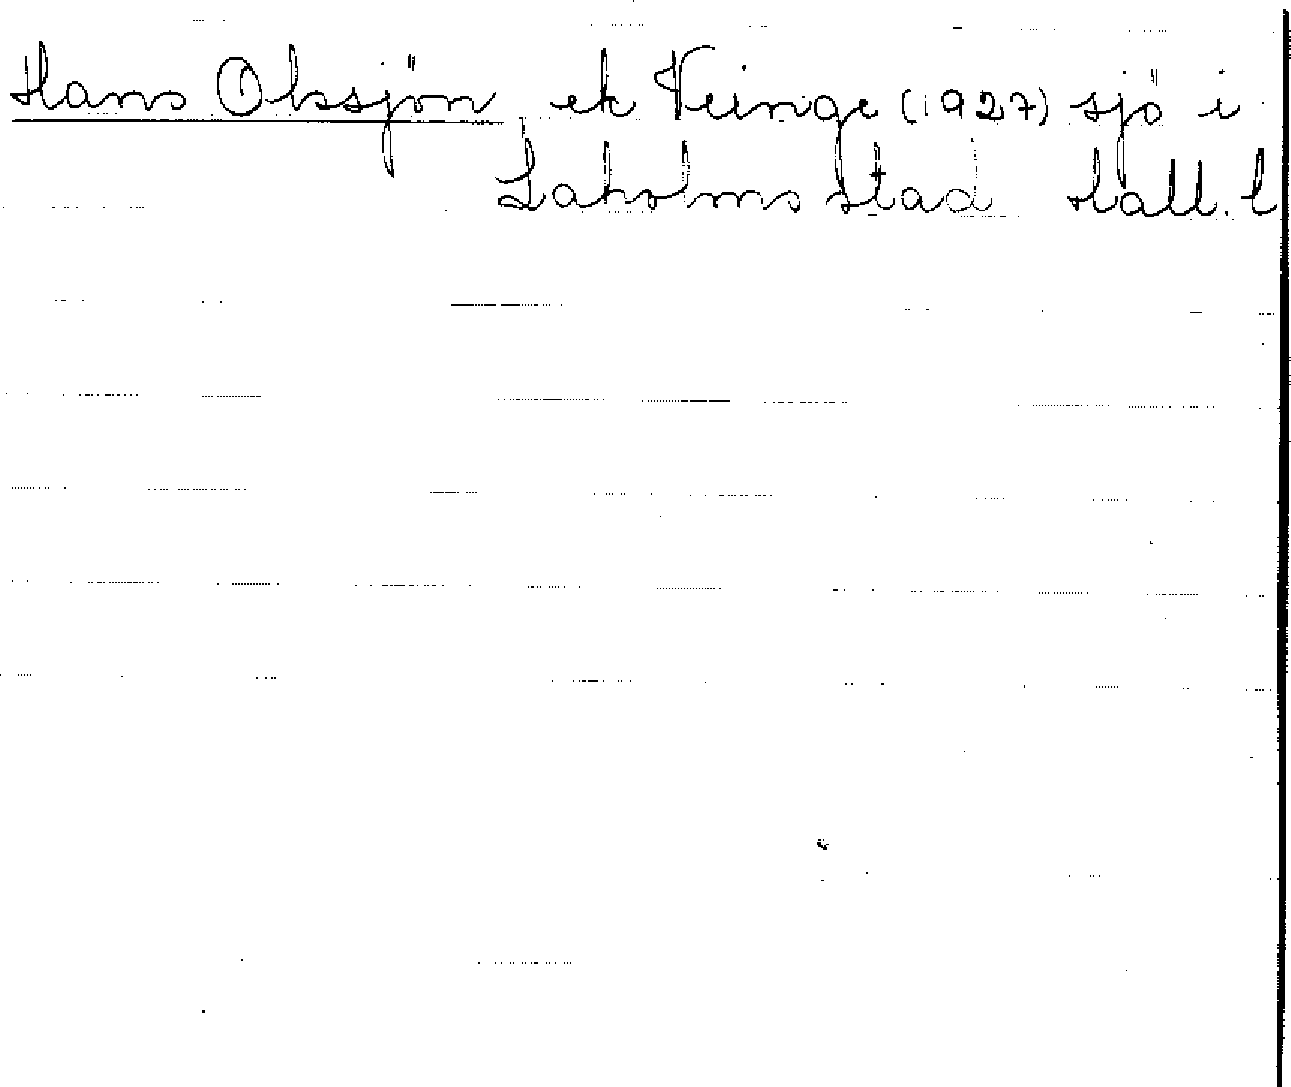 Hans Olssjön ek Veinge (1927) sjö i
Laholms stad Hall. l